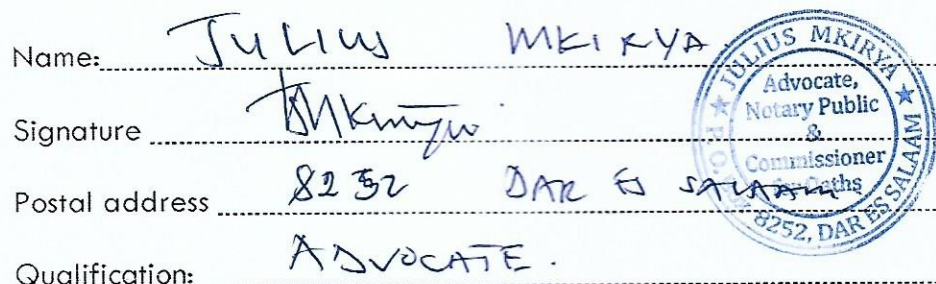 Name: JULIUS MKIRYA
Signature
Postal address 8252 DAR ES SALAAM
Qualification: ADVOCATE.
JULIUS MKIRYA
Advocate,
Notary Public
&
Commissioner
for Oaths
P.O. BOX 8252, DAR ES SALAAM